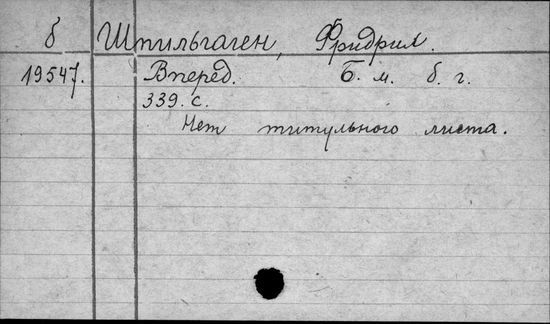 б Шпильгаген, Фридрих.
19547. Вперед. Б. м. б. г.
339. с.
Нет титульного листа.